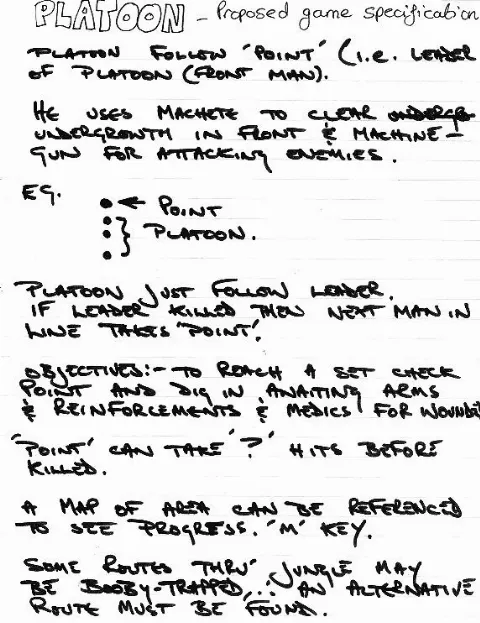 PLATOON – Proposed game specification
PLATOON FOLLOW 'POINT' (i.e. LEADER
OF PLATOON (FRONT MAN).
HE USES MACHETE TO CLEAR UNDERGR
UNDERGROWTH IN FRONT & MACHINE-
GUN FOR ATTACKING ENEMIES.
EG.
POINT
PLATOON.
PLATOON JUST FOLLOW LEADER.
IF LEADER KILLED THEN NEXT MAN IN
LINE TAKES 'POINT'.
OBJECTIVES:- TO REACH A SET CHECK
POINT AND DIG IN, AWAITING ARMS
& REINFORCEMENTS & MEDICS FOR WOUNDED
'POINT' CAN TAKE '?' HITS BEFORE
KILLED.
A MAP OF AREA CAN BE REFERENCED
TO SEE PROGRESS. 'M' KEY.
SOME ROUTES THRU' JUNGLE MAY
BE BOOBY-TRAPPED,.. AN ALTERNATIVE
ROUTE MUST BE FOUND.